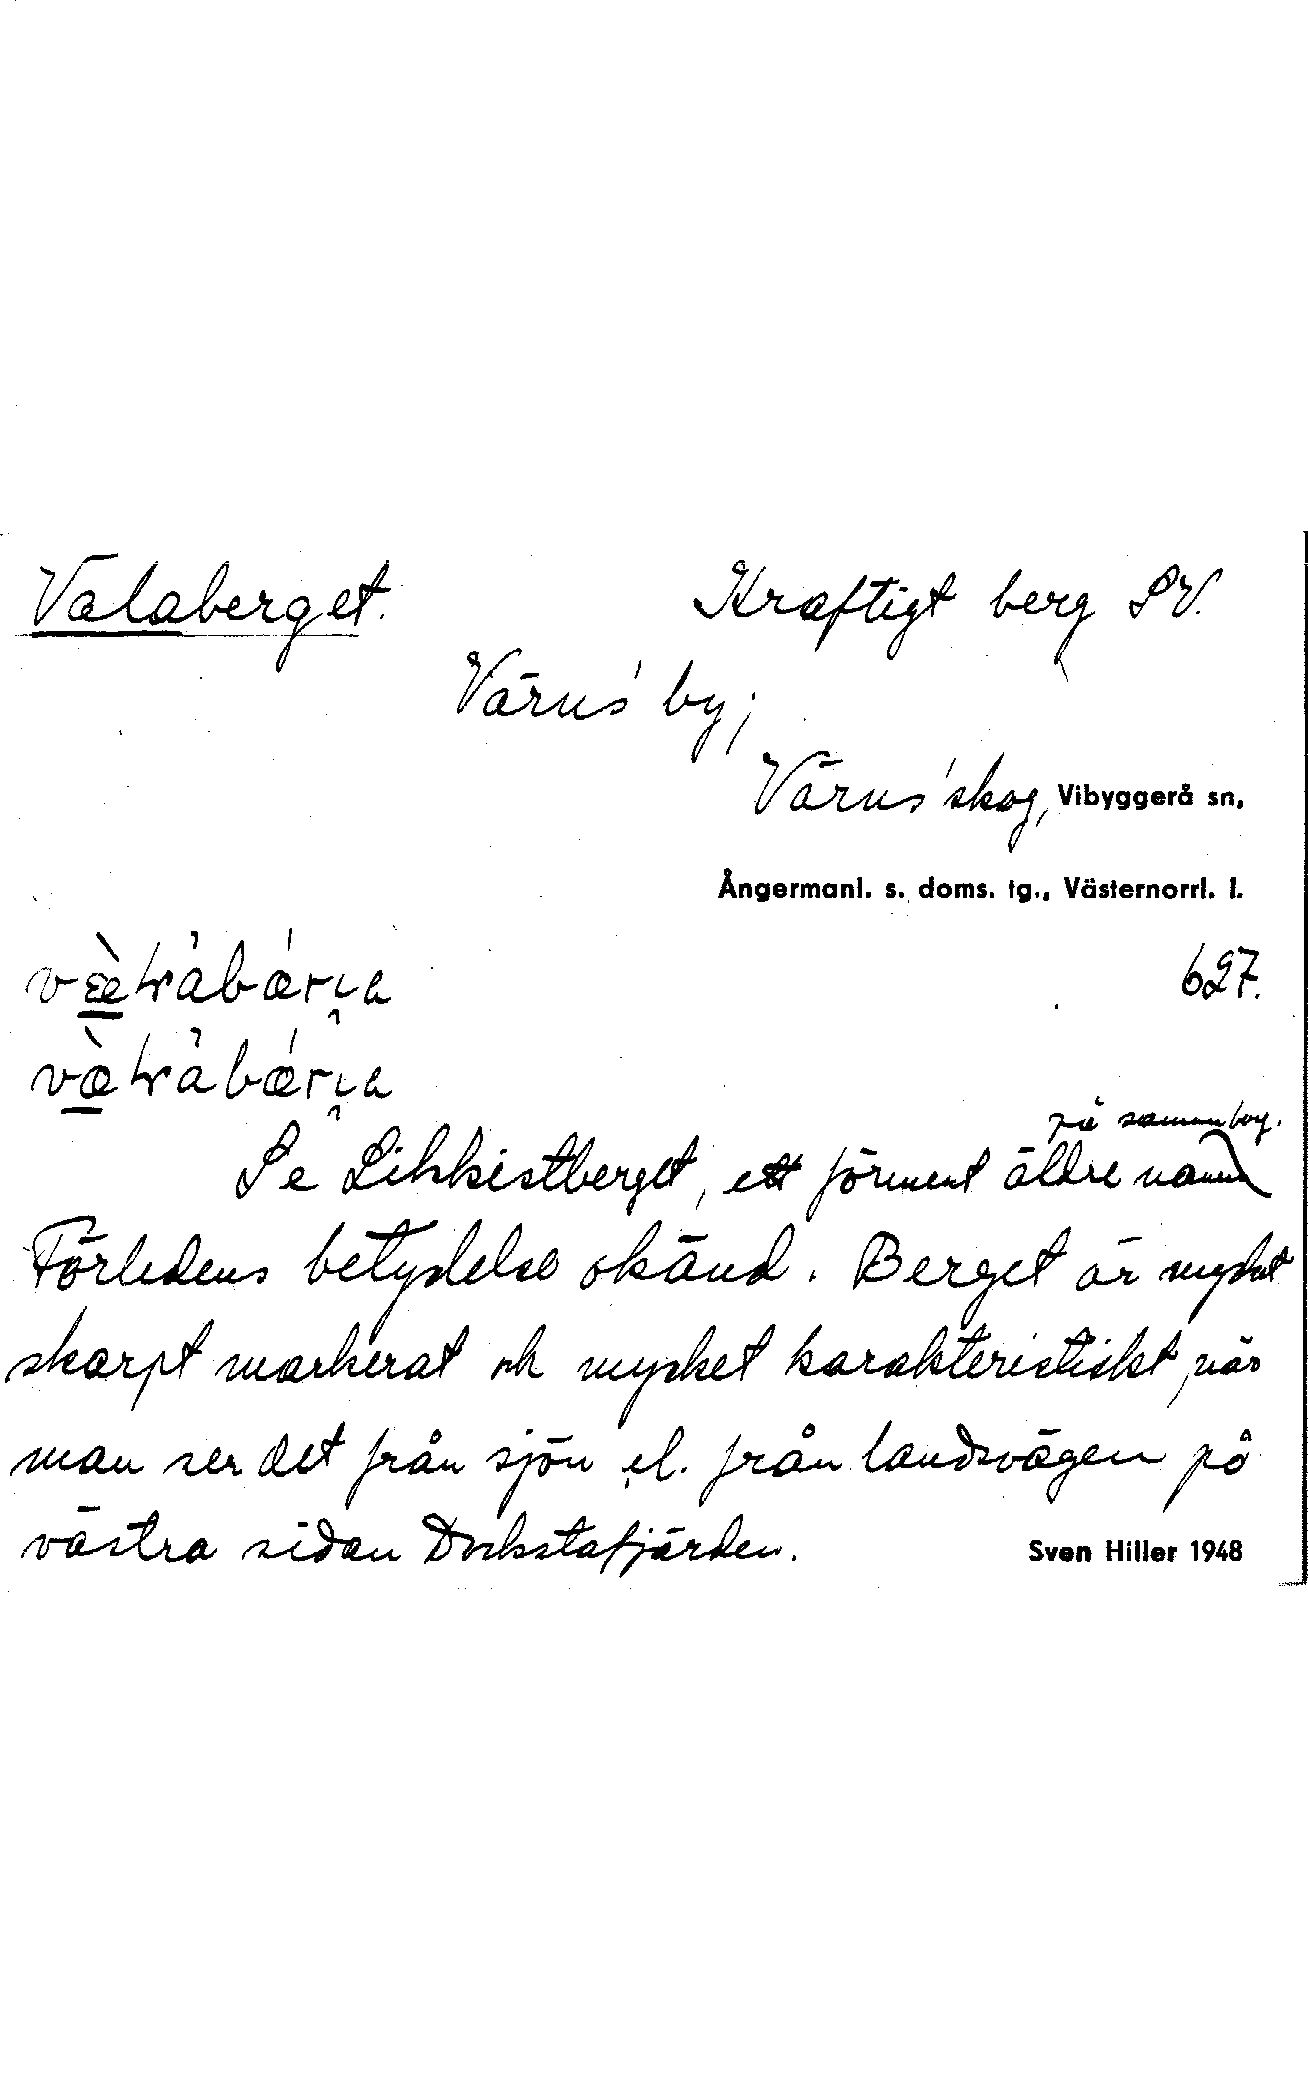 Välaberget. Kraftigt berg SV.
Värns' by;
Värns' skog, Vibyggerå sn,
Ångermanl. s. doms. tg., Västernorrl. l.
627.
på samma berg.
Se Likkistberget, ett förment äldre namn
Förledens betydelse okänd. Berget är mycket
skarpt markerat och mycket karakteristiskt, när
man ser det från sjön el. från landsvägen på
västra sidan Docksta fjärden.
Sven Hiller 1948